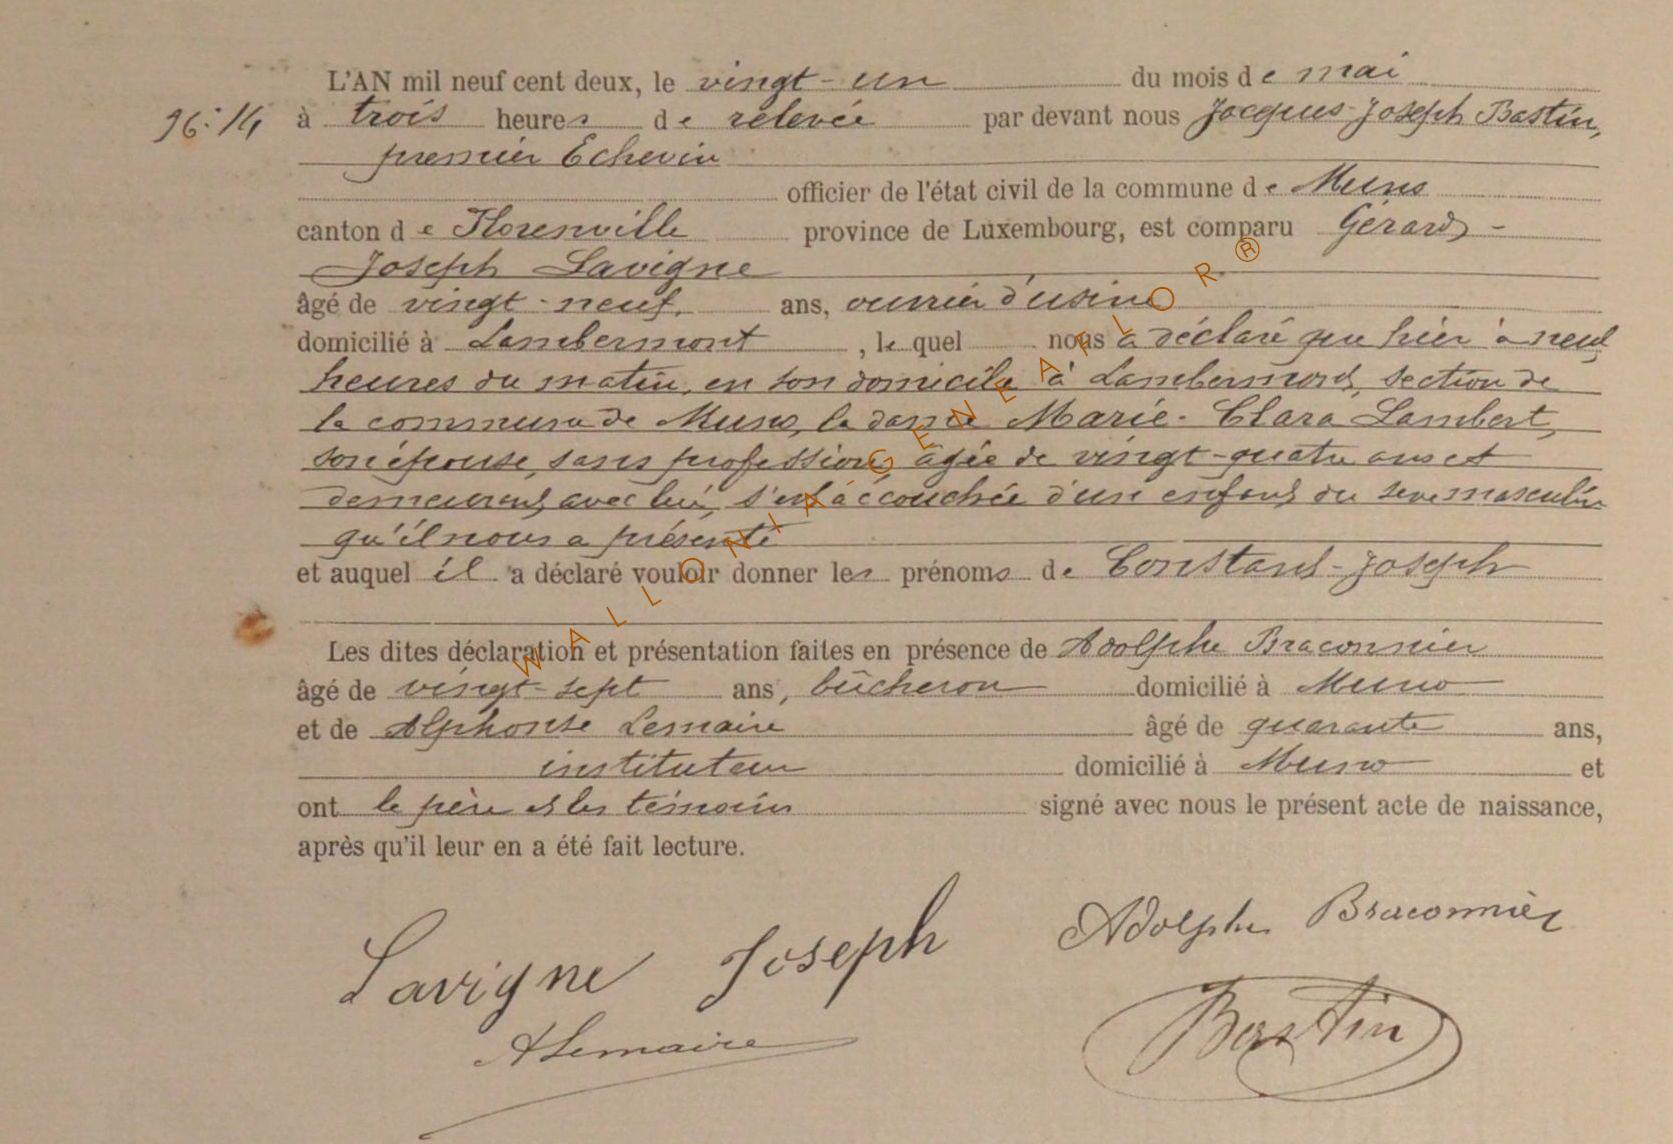 L'AN mil neuf cent deux, le vingt-un du mois de mai
96:14 à trois heures de relevée par devant nous Jacques-Joseph Bastin,
premier Echevin
officier de l'état civil de la commune de Muno
canton de Florenville province de Luxembourg, est comparu Gérard-
Joseph Lavigne
âgé de vingt-neuf. ans, ouvrier d'usine
domicilié à Lambermont, lequel nous a déclaré que hier à neuf
heures du matin, en son domicile à Lambermont, section de
la commune de Muno, la dame Marie-Clara Lambert,
son épouse, sans profession, âgée de vingt-quatre ans et
demeurant avec lui, s'est accouchée d'un enfant du sexe masculin
qu'il nous a présenté
et auquel il a déclaré vouloir donner les prénoms de Constant-Joseph
Les dites déclaration et présentation faites en présence de Adolphe Braconnier
âgé de vingt-sept ans, bûcheron domicilié à Muno
et de Alphonse Lemaire âgé de quarante ans,
instituteur domicilié à Muno et
ont le père et les témoins signé avec nous le présent acte de naissance,
après qu'il leur en a été fait lecture.
Lavigne Joseph Adolphe Braconnier
ALemaire Bastin
WALLONIA GENEAFLOR®